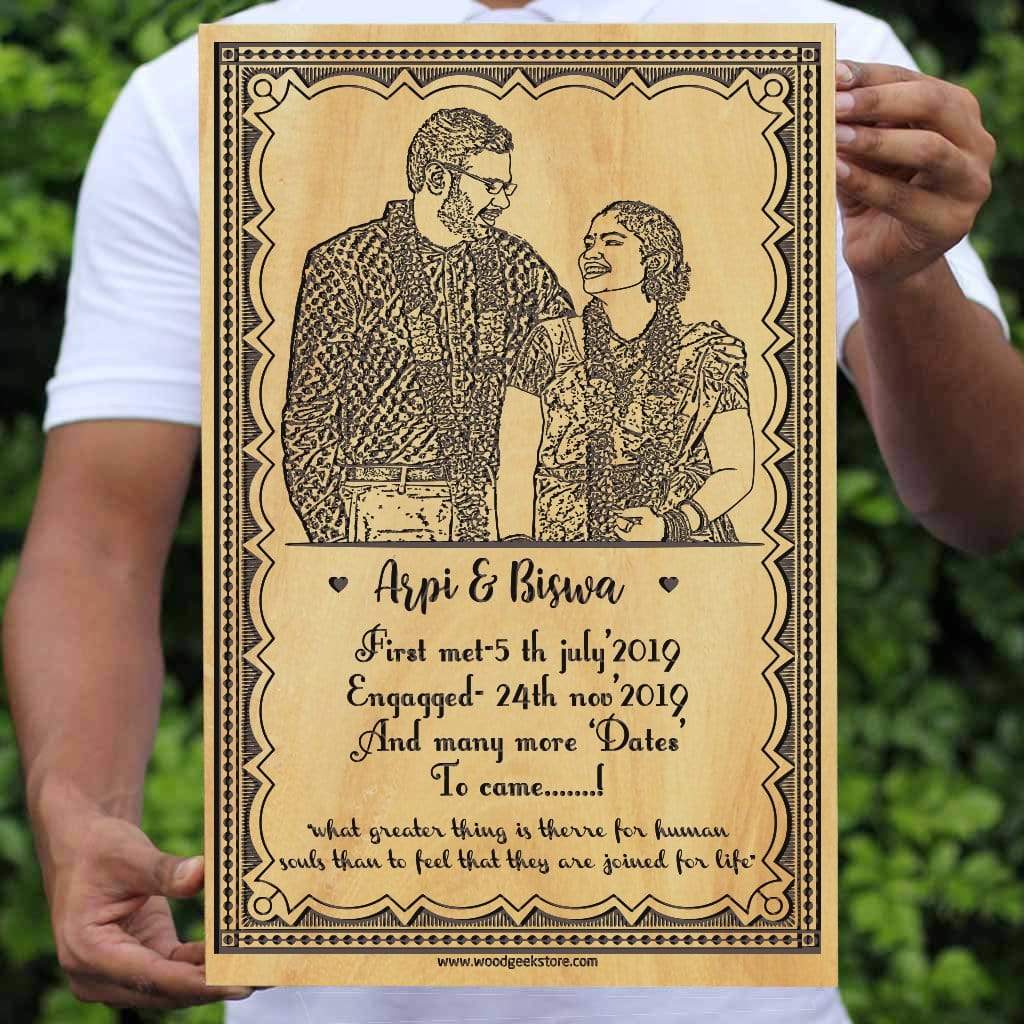 Arpi & Biswa
First met-5 th july'2019
Engagged- 24th nov'2019
And many more 'Dates'
To came.......!
"what greater thing is therre for human
souls than to feel that they are joined for life"
www.woodgeekstore.com